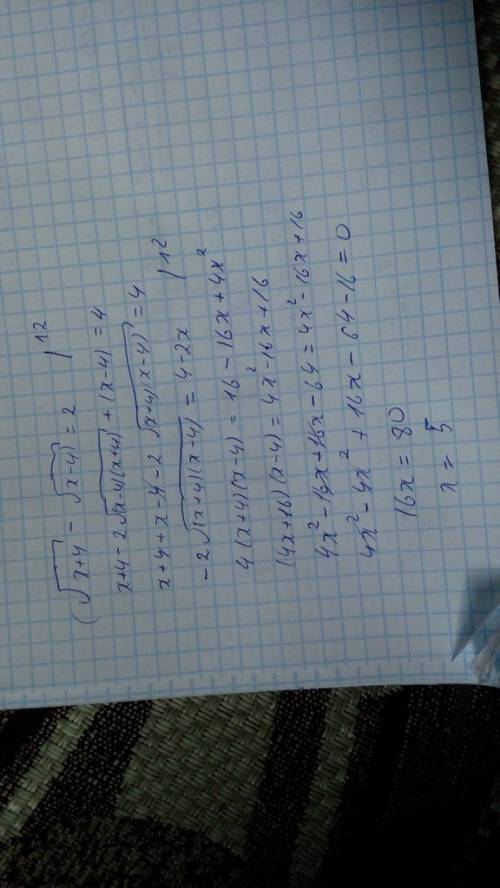 (√(x+4) - √(x-4)) = 2 |^2
x+4 - 2√((x-4)(x+4)) + (x-4) = 4
x+4+x-4-2√((x+4)(x-4)) = 4
-2√((x+4)(x-4)) = 4-2x |^2
4(x+4)(x-4) = 16-16x+4x²
(4x+16)(x-4) = 4x²-16x+16
4x²-16x+16x-64 = 4x²-16x+16
4x²-4x²+16x-64-16=0
16x = 80
x = 5